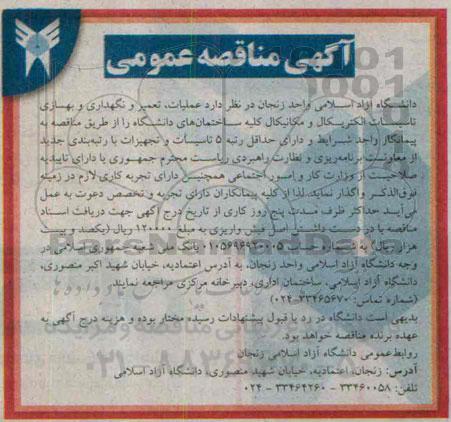 آگهی مناقصه عمومی
دانشگاه آزاد اسلامی واحد زنجان در نظر دارد عملیات، تعمیر و نگهداری و بهسازی
تاسیسات الکتریکال و مکانیکال کلیه ساختمان‌های دانشگاه را از طریق مناقصه به
پیمانکار واجد شرایط و دارای حداقل رتبه ۵ تاسیسات و تجهیزات با رتبه‌بندی جدید
از معاونت برنامه‌ریزی و نظارت راهبردی ریاست محترم جمهوری یا دارای تاییدیه
صلاحیت از وزارت کار و امور اجتماعی همچنین دارای تجربه کاری لازم در زمینه
فوق‌الذکر واگذار نماید. لذا از کلیه پیمانکاران دارای تجربه و تخصص دعوت به عمل
می‌آید حداکثر ظرف مدت پنج روز کاری از تاریخ درج آگهی جهت دریافت اسناد
مناقصه با در دست داشتن اصل فیش واریزی به مبلغ ۱۲۰۰۰۰ ریال (یکصد و بیست
هزار ریال) به شماره حساب ۰۱۰۵۶۹۴۹۲۰۰۰۵ بانک ملی شعبه جمهوری اسلامی در
وجه دانشگاه آزاد اسلامی واحد زنجان، به آدرس اعتمادیه، خیابان شهید اکبر منصوری،
دانشگاه آزاد اسلامی، ساختمان اداری، دبیرخانه مرکزی مراجعه نمایند.
(شماره تماس: ۳۳۴۶۵۶۷۰-۰۲۴)
بدیهی است دانشگاه در رد یا قبول پیشنهادات رسیده مختار بوده و هزینه درج آگهی به
عهده برنده مناقصه خواهد بود.
روابط‌عمومی دانشگاه آزاد اسلامی زنجان
آدرس: زنجان، اعتمادیه، خیابان شهید منصوری، دانشگاه آزاد اسلامی
تلفن: ۳۳۴۶۰۰۵۸ - ۳۳۴۶۴۲۶۰ - ۰۲۴